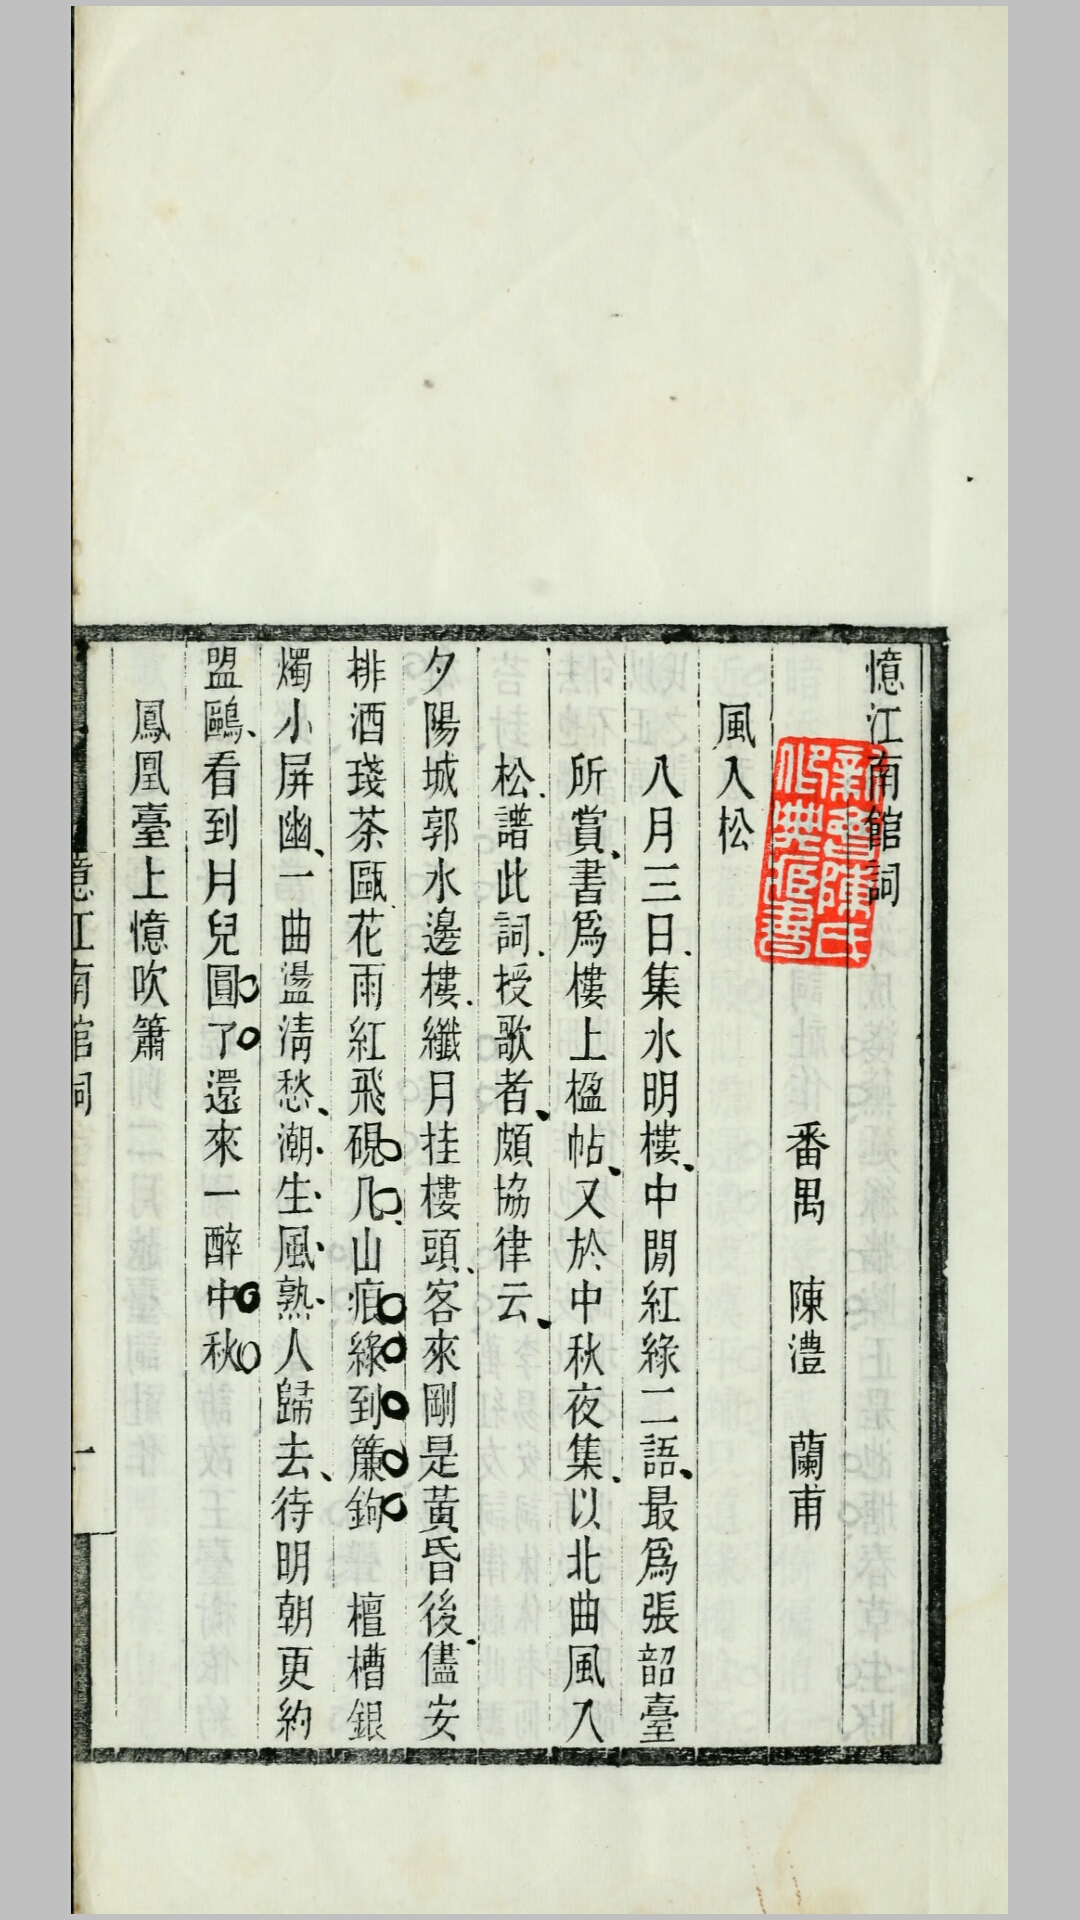 憶江南館詞
番禺　陳澧　蘭甫
風入松
八月三日集水明樓中閒紅綠二語最爲張韶臺
所賞書爲樓上楹帖又於中秋夜集以北曲風入
松譜此詞授歌者頗協律云
夕陽城郭水邊樓纖月挂樓頭客來剛是黃昏後儘安
排酒琖茶甌花雨紅飛硯几山痕綠到簾鉤　檀槽銀
燭小屏幽一曲盪淸愁潮生風熟人歸去待明朝更約
盟鷗看到月兒圓了還來一醉中秋
鳳凰臺上憶吹簫
憶江南館詞
一